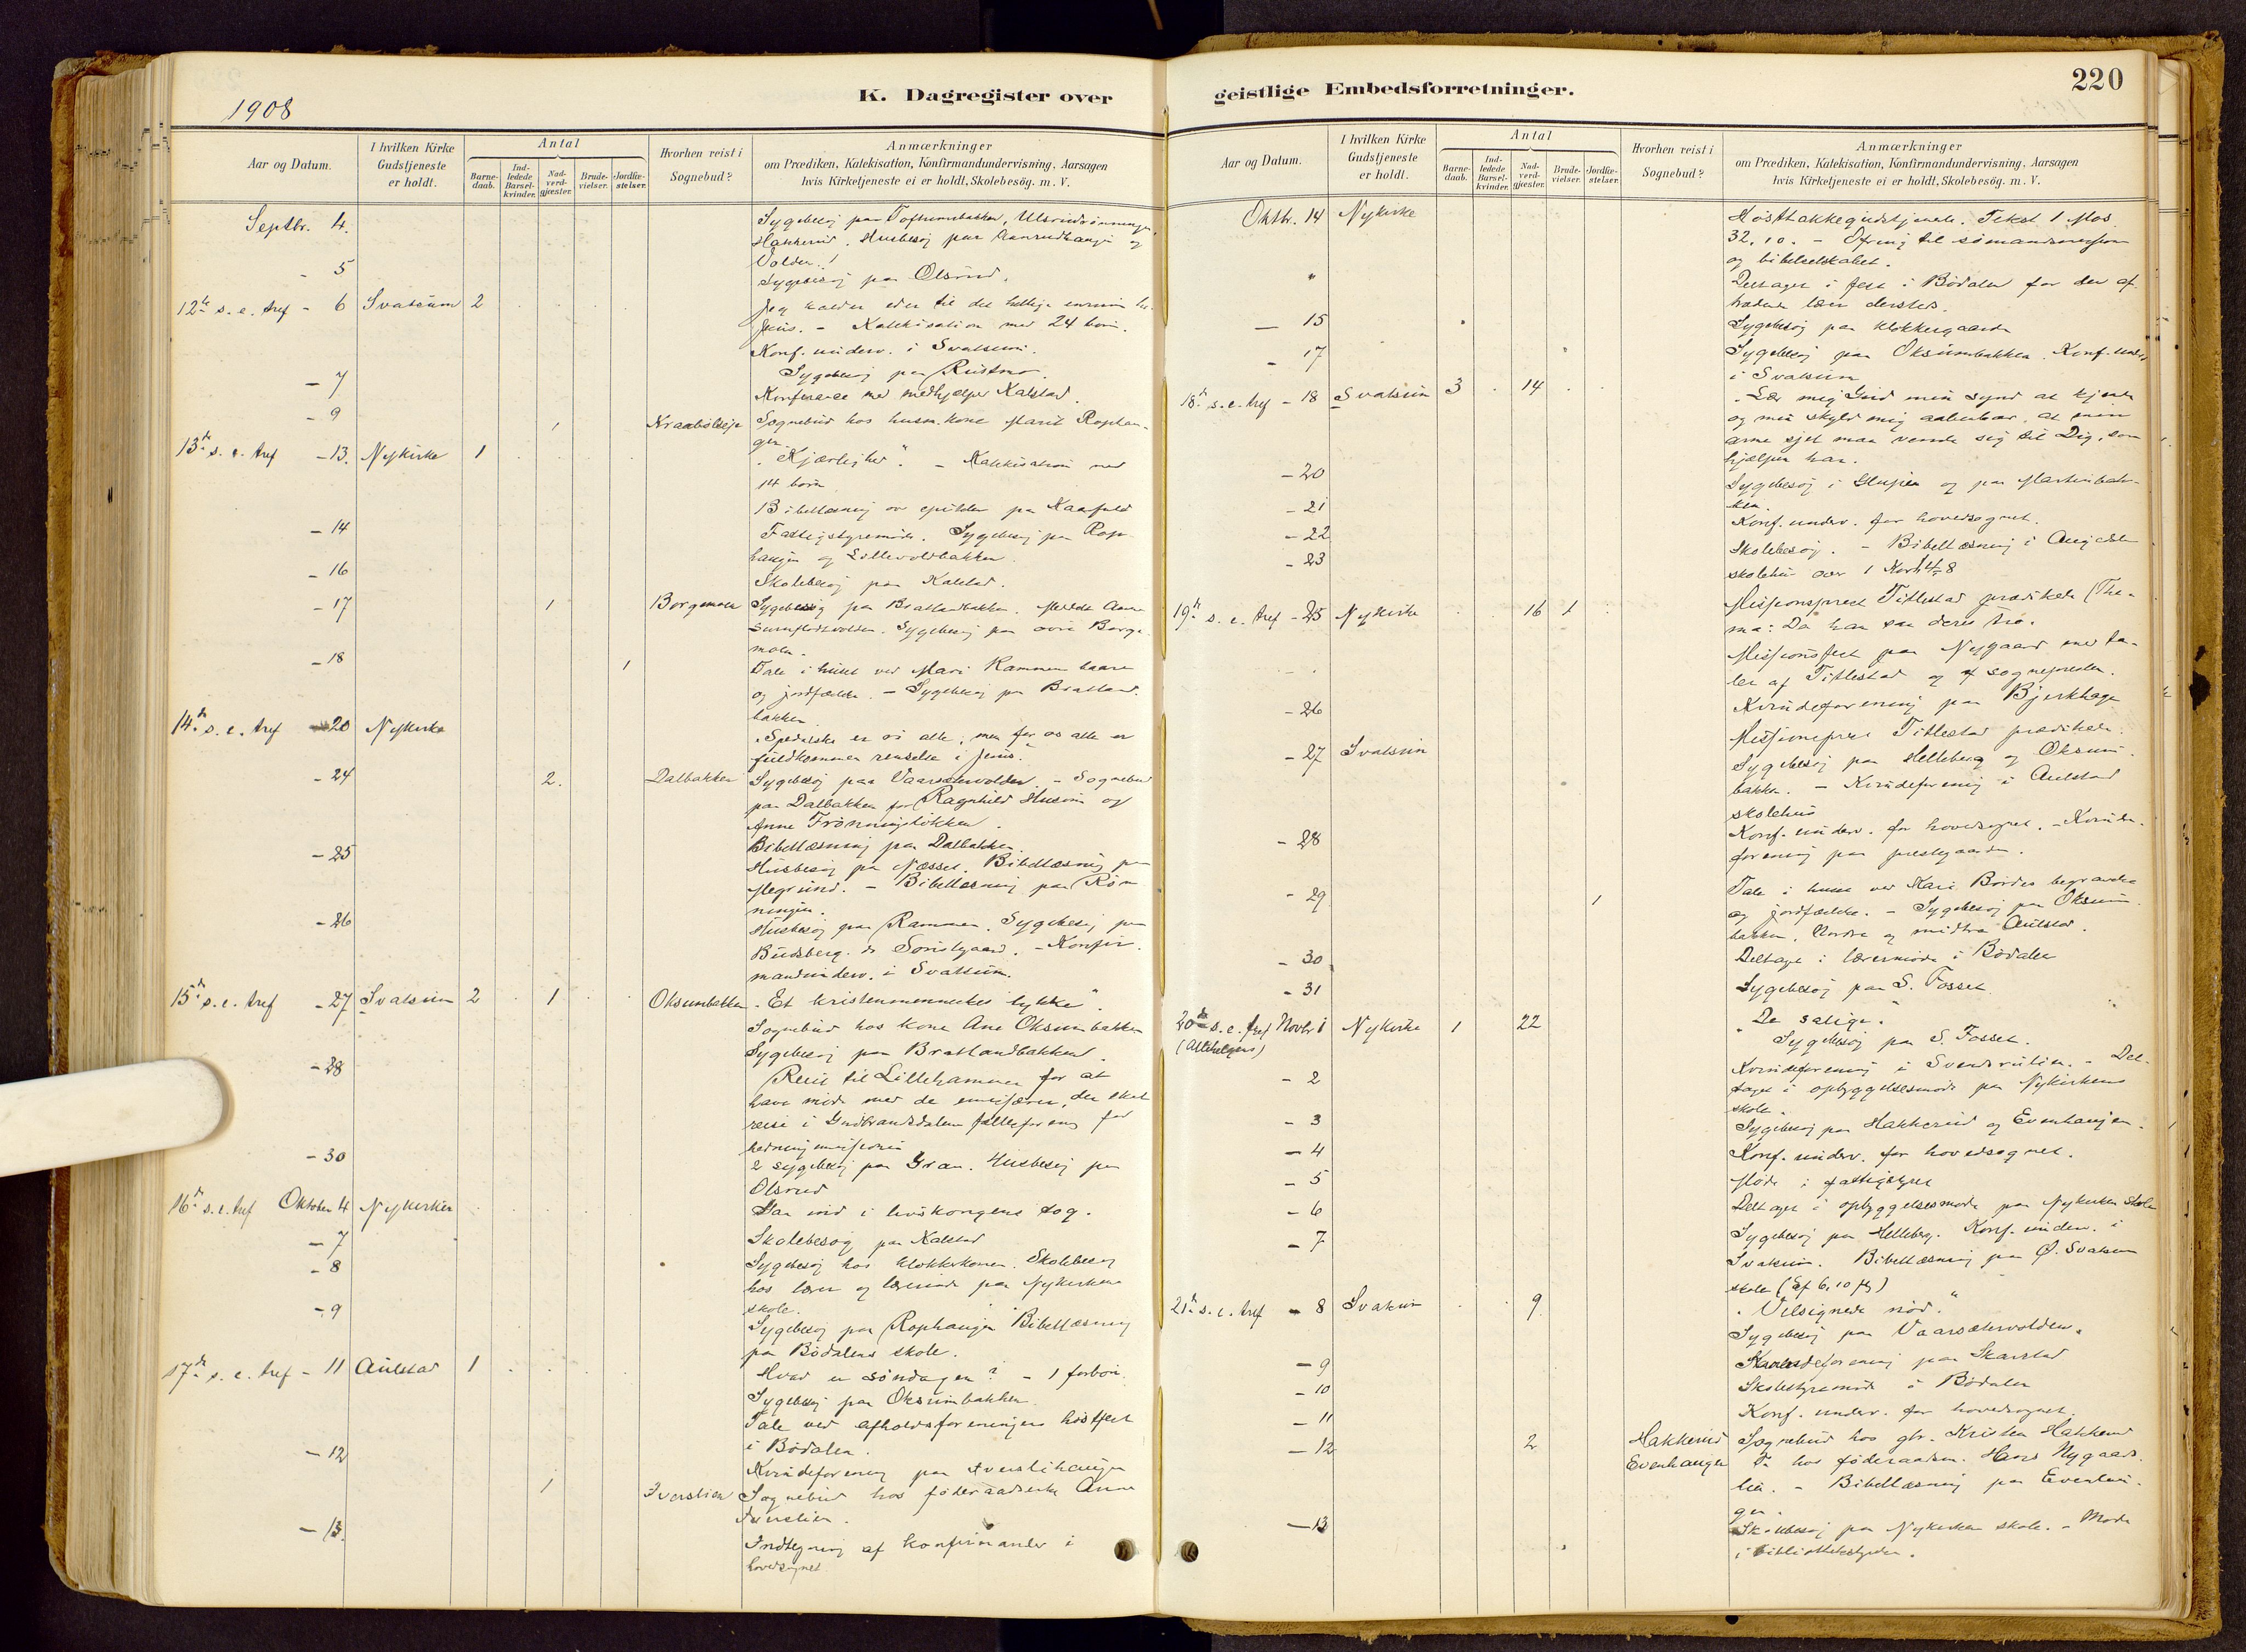 1908
K. Dagregister over
Aar og Datum.
I hvilken Kirke Gudstjeneste er holdt.
Antal
Barnedaab.
Indledede Barselkvinder.
Nadverdgjester
Brudevielser.
Jordfæstelser.
Hvorhen reist i Sognebud?
Anmærkninger
om Prædiken, Katekisation, Konfirmandundervisning, Aarsagen
hvis Kirketjeneste ei er holdt, Skolebesög. m. V.
Septbr. 4. Sygebesøg paa
Hakkerud. Husbesøg paa og
- 5 Sygebesøg paa Olsrud.
12te s. e. tref - 6 Svatsum 2 Jeg kalder eder til det hellige
Jesus. - Katekisation med 24 børn.
Konf. underv. i Svatsum.
- 7 Sygebesøg paa
Konferanse med medhjælper Kalstad.
- 9 1 Sognebud hos husm. kone Marit
13de s. e. tref - 13. Nykirke 1 "Kjærlighed". - Katekisation med
14 børn
Bibellæsning
- 14 Fattigstyremøde. Sygebesøg paa
haugen og Lillevoldbakken.
- 16 Skolebesøg paa Kalstad.
- 17 1 Borgemoen Sygebesøg paa Bratlandbakken.
Sygebesøg paa
moen.
- 18 1 Tale i huset ved Mari Rammen baare
og jordfæstelse. - Sygebesøg paa Bratland-
bakken.
14de s. e. tref - 20 Nykirke "Spedalske er vi alle, men for os alle er
fuldkommen renselse i Jesus."
- 24 2. Dalbakken Sygebesøg paa Vaarsætervolden - Sognebud
paa Dalbakken for Ragnhild Husom og
Anne
- 25 Bibellæsning paa Dalbakken.
Husbesøg paa Næsset. Bibellæsning paa
Megrund. - Bibellæsning paa Røn-
ningen.
- 26 Husbesøg paa Rammen. Sygebesøg paa
Budsberg. - Konfir-
mandunderv. i Svatsum.
15de s. e. tref - 27 Svatsum 2 1 Oksumbakken "Et kristenmenneskes lykke".
Sognebud hos kone Ane Oksumbakken
Sygebesøg paa Bratlandbakken.
- 28 Reise til Lillehammer for at
have møde med de emissærer, der skal
reise i Gudbrandsdalens fællesforening for
hedningmissionen
- 30 2 sygebesøg paa Gran. Husbesøg paa
Olsrud
16de s. e. tref Oktober 4 Nykirken Dan ind i livskongens tog.
- 7 Skolebesøg paa Kalstad
- 8 Sygebesøg hos klokkerkonen. Skolebesøg
hos lærer og lærerinde paa Nykirkens
skole.
- 9 Sygebesøg paa Rophaugen Bibellæsning
paa Bødalens skole.
17de s. e. tref - 11 Aulstad 1 Hvad er søndagen? - 1 forbøn.
Sygebesøg paa Oksumbakken.
Tale ved afholdsforeningens høstfest
i Bødalen.
- 12 Kvindeforening paa Iverslihaugen
1 Iverslien Sognebud hos føderaadsenke Anne
Iverslien.
- 13. Indtegning af konfirmander i
hovedsognet
geistlige Embedsforretninger.
220
Aar og Datum.
I hvilken Kirke Gudstjeneste er holdt.
Antal
Barnedaab.
Indledede Barselkvinder.
Nadverdgjester.
Brudevielser.
Jordfæstelser.
Hvorhen reist i Sognebud?
Anmærkninger
om Prædiken, Katekisation, Konfirmandundervisning, Aarsagen
hvis Kirketjeneste ei er holdt, Skolebesög. m. V.
Oktbr. 14 Nykirke Høsttakkegudstjeneste. Tekst 1 Mos.
32, 10. - Ofring til sømandsmission
og bibelselskabet.
" Deltaget i fest i Bødalen for den af-
lærer dersteds.
- 15 Sygebesøg paa klokkergaarden
- 17 Sygebesøg paa Oksumbakken. Konf. underv.
i Svatsum
18de s. e. tref - 18 Svatsum 3 14 "Lær mig Gud min synd at kjende
og min skyld mig aabenbar, at min
arme sjel maa vende sig til Dig, som
hjælpen har.
- 20 Sygebesøg i og paa Martinbak-
ken.
- 21 Konf. underv. for hovedsognet.
- 22 Skolebesøg. - Bibellæsning i
- 23 skolehus over 1 Kor.
19de s. e. tref - 25 Nykirke 16 1 Missionsprest Titlestad prædikede (The-
ma: Da han saa deres tro.
Missionsfest paa Nygaard med ta-
ler af Titlestad og af sognepresten.
- 26 Kvindeforening paa Bjerkhage
- 27 Svatsum Missionsprest Titlestad prædikede.
Sygebesøg paa Helleberg og Oksum-
bakken. - Kvindeforening i Aulstad
skolehus
- 28 Konf. underv. for hovedsognet. - Kvinde-
forening paa prestegaarden.
- 29 1 Tale i huset ved Kari begravelse
og jordfæstelse. - Sygebesøg paa Oksum-
bakken, Nordre og midtre Aulstad.
- 30 Deltaget i lærermøde i Bødalen
- 31 Sygebesøg paa S. Fosset.
20de s. e. tref Novbr 1 (Allehelgens) Nykirke 1 22 "De salige."
Sygebesøg paa S. Fosset.
- 2 Kvindeforening i - Del-
taget i opbyggelsesmøde paa Nykirkens
skole.
- 3 Sygebesøg paa Hakkerud og Evenhaugen.
- 4 Konf. underv. for hovedsognet.
- 5 Møde i fattigstyret
- 6 Deltaget i opbyggelsesmøde paa Nykirken skole
- 7 Sygebesøg paa Helleberg. Konf. underv. i
Svatsum. Bibellæsning paa Ø. Svatsum
skole (Ef 6, 10 flg)
21de s. e. tref - 8 Svatsum 9 "Velsignede nød."
Sygebesøg paa Vaarsætervolden.
- 9 Kvindeforening paa Skarstad
- 10 Skolestyremøde i Bødalen
- 11 Konf. underv. for hovedsognet.
- 12 2 Hakkerud Sognebud hos gbr. Kristen Hakkerud
Evenhaugen Do hos føderaadsm. Hans Nygaards-
lien. - Bibellæsning paa Evenhau-
gen.
- 13 Skolebesøg paa Nykirken skole. - Møde
i biblioteksstyret.